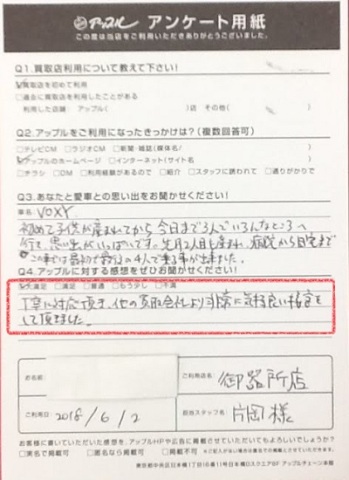 アップル アンケート用紙
この度は当店をご利用いただきありがとうございました。
Q1.買取店利用について教えて下さい!
買取店を初めて利用
□過去に買取店を利用したことがある
利用した店舗 アップル( )店 その他( )
Q2.アップルをご利用になったきっかけは?(複数回答可)
□テレビCM □ラジオCM □新聞・雑誌(媒体名/ )
アップルのホームページ □インターネット(サイト名 )
□チラシ □DM □利用経験があるので □紹介 □スタッフに誘われて □通りがかりで
Q3.あなたと愛車との思い出をお聞かせください!
車名 VOXY
初めて子供が産まれてから今日まで3人でいろんなところへ
行き、思い出がいっぱいです。先月2人目も産まれ、病院から自宅まで
この車では最初で最後の4人で乗る事が出来ました。
Q4.アップルに対する感想をぜひお聞かせください!
大満足 □満足 □普通 □もう少し □不満
丁寧に対応頂き、他の買取会社より非常に気持良い接客を
して頂きました。
お名前
ご利用店名 御器所店
ご利用日 2018/6/2
担当スタッフ名 片岡様
お客様に書いていただいた感想を、アップルHPや広告に掲載させていただいてもよろしいでしょうか?
□実名で掲載可 □匿名なら掲載可 □掲載不可
東京都中央区日本橋1丁目16番11号日本橋DスクエアBF アップルチェーン本部